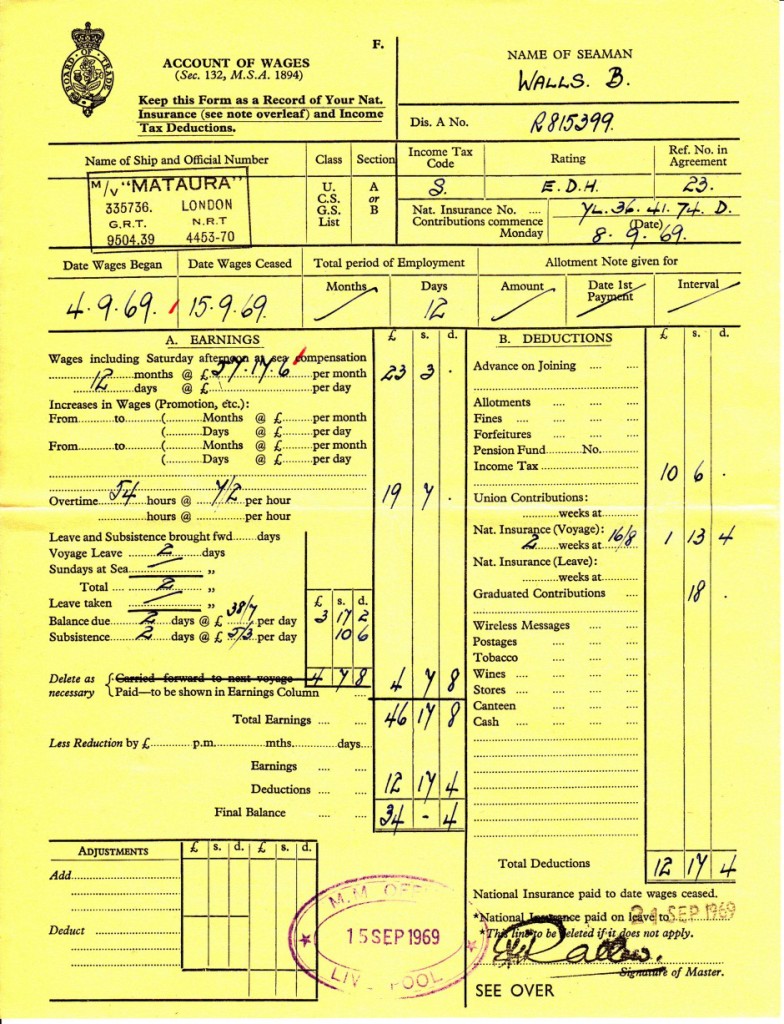 BOARD OF TRADE
F.
ACCOUNT OF WAGES
(Sec. 132, M.S.A. 1894)
Keep this Form as a Record of Your Nat.
Insurance (see note overleaf) and Income
Tax Deductions.
NAME OF SEAMAN
WALLS. B.
Dis. A No. R815399.
Name of Ship and Official Number
Class
Section
Income Tax
Code
Rating
Ref. No. in
Agreement
M/V "MATAURA"
335736. LONDON
G.R.T. N.R.T
9504.39 4453-70
U.
C.S.
G.S.
List
A
or
B
S. E.D.H. 23.
Nat. Insurance No. .... YL. 36. 41. 74. D.
Contributions commence (Date)
Monday 8. 9. 69.
Date Wages Began
Date Wages Ceased
Total period of Employment
Allotment Note given for
Months
Days
Amount
Date 1st
Payment
Interval
4.9.69. 15.9.69. 12
A. EARNINGS £ s. d.
Wages including Saturday afternoon at sea compensation
months @ £ 57.17.6 per month
12 days @ £ per day 23 3 .
Increases in Wages (Promotion, etc.):
From to (Months @ £ per month
(Days @ £ per day
From to (Months @ £ per month
(Days @ £ per day
Overtime 54 hours @ 7/2 per hour 19 7 .
hours @ per hour
Leave and Subsistence brought fwd. days
Voyage Leave 2 days
Sundays at Sea ,,
Total .... 2 ,,
Leave taken ,, £ s. d.
Balance due 2 days @ £ 38/7 per day 3 17 2
Subsistence 2 days @ £ 5/3 per day 10 6
Delete as
necessary
{ Carried forward to next voyage 4 7 8
Paid—to be shown in Earnings Column .... 4 7 8
Total Earnings .... 46 17 8
Less Reduction by £ p.m. mths. days
Earnings ....
Deductions .... 12 17 4
Final Balance 34 - 4
B. DEDUCTIONS £ s. d.
Advance on Joining .... ....
Allotments .... .... ....
Fines .... .... ....
Forfeitures .... .... ....
Pension Fund No.
Income Tax 10 6 .
Union Contributions:
weeks at
Nat. Insurance (Voyage):
2 weeks at 16/8 1 13 4
Nat. Insurance (Leave):
weeks at
Graduated Contributions .... 18 .
Wireless Messages .... ....
Postages .... ....
Tobacco .... ....
Wines .... .... ....
Stores .... .... ....
Canteen .... ....
Cash .... .... ....
Total Deductions 12 17 4
ADJUSTMENTS £ s. d. £ s. d.
Add
Deduct
M.M. OFFICE
15 SEP 1969
LIVERPOOL
National Insurance paid to date wages ceased.
*National Insurance paid on leave to 21 SEP 1969
*This line to be deleted if it does not apply.
Signature of Master.
SEE OVER